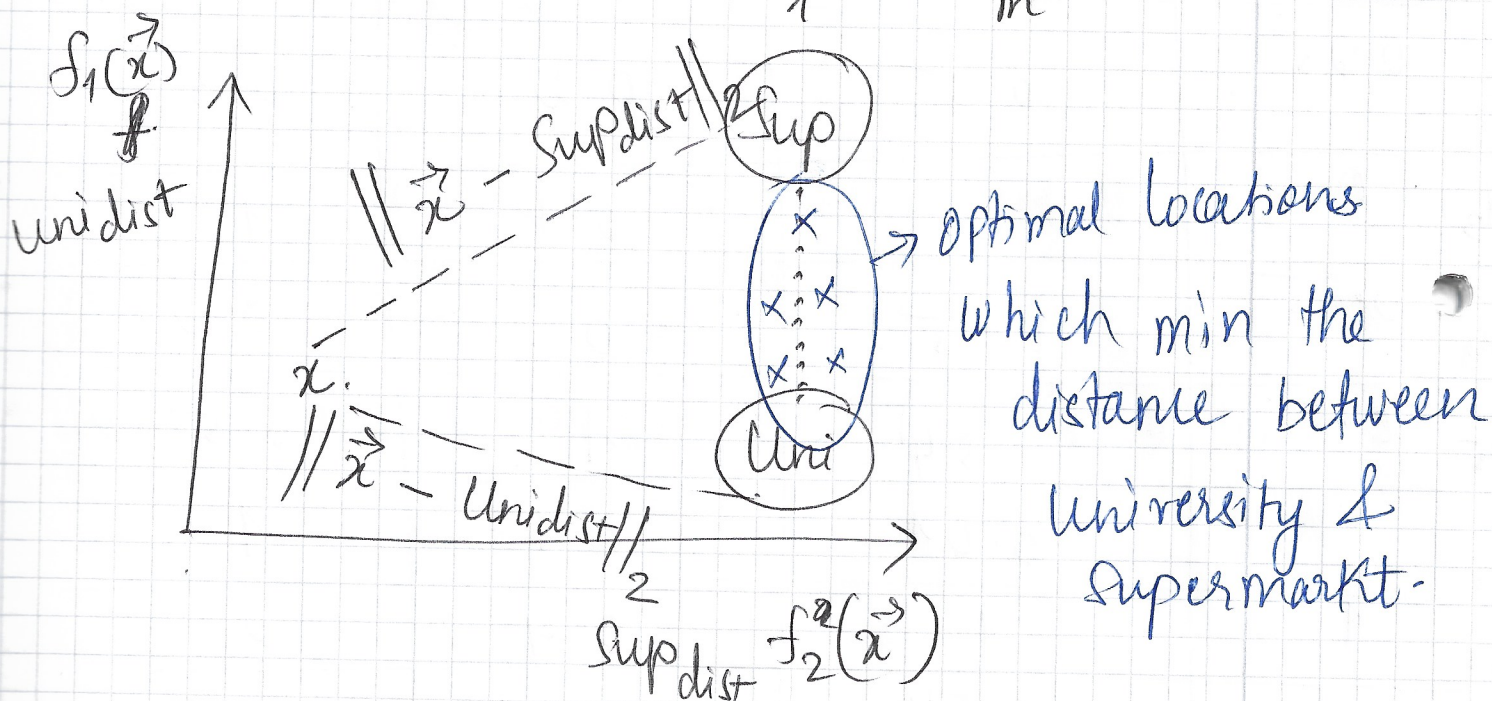 1 m
f₁(x⃗)
unidist
‖x⃗ - Supdist‖₂
Sup
x.
‖x⃗ - Unidist‖₂
Uni
x
x x
x x
→ optimal locations
which min the
distance between
university &
supermarkt.
sup dist f₂(x⃗)